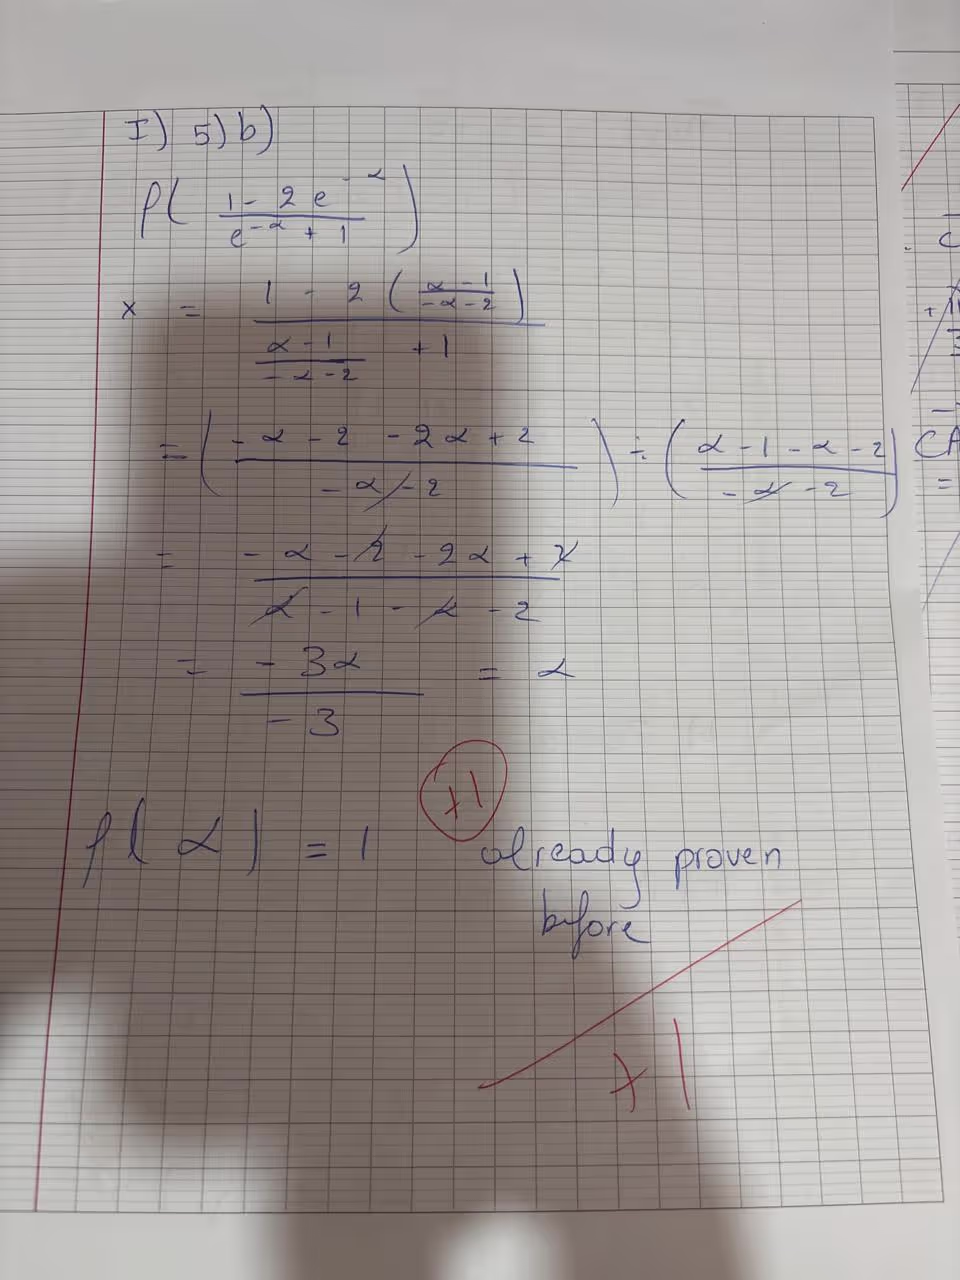 I) 5) b)
f( (1 - 2e^-α) / (e^-α + 1) )
x = (1 - 2 ( (α - 1) / (-α - 2) )) / ( (α - 1) / (-α - 2) + 1 )
= ( (-α - 2 - 2α + 2) / (-α - 2) ) ÷ ( (α - 1 - α - 2) / (-α - 2) )
= (-α - 2 - 2α + 2) / (α - 1 - α - 2)
= (-3α) / (-3) = α
+1
f(α) = 1 already proven
before
+1
CA
=